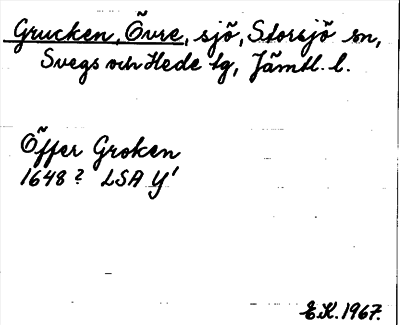 Grucken, Övre, sjö, Storsjö sn,
Svegs och Hede tg, Jämtl. l.
Öffer Groken
1648? LSA Y'
E.K. 1967.